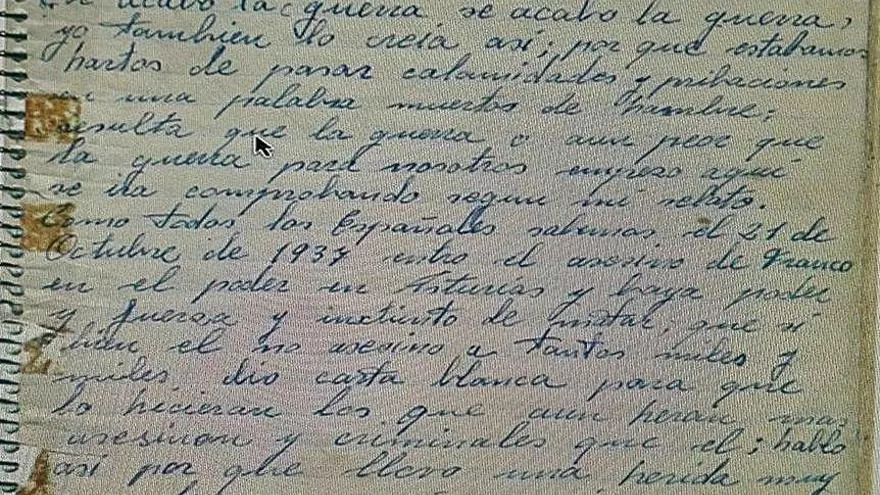 se acabo la guerra, se acabo la guerra,
yo tambien lo creia asi; por que estabamos
hartos de pasar calamidades y pribaciones
en una palabra muertos de hambre;
resulta que la guerra o aun peor que
la guerra para nosotros empezo aqui
se ira comprobando segun mi relato.
Como todos los Españoles sabemos el 21 de
Octubre de 1937 entro el asesino de Franco
en el poder en Asturias y baya poder
y fuerza y instinto de matar, que si
bien el no asesino a tantos miles y
miles, dio carta blanca para que
lo hicieran los que aun heran mas
asesinan y criminales que el; hablo
asi por que llevo una herida muy